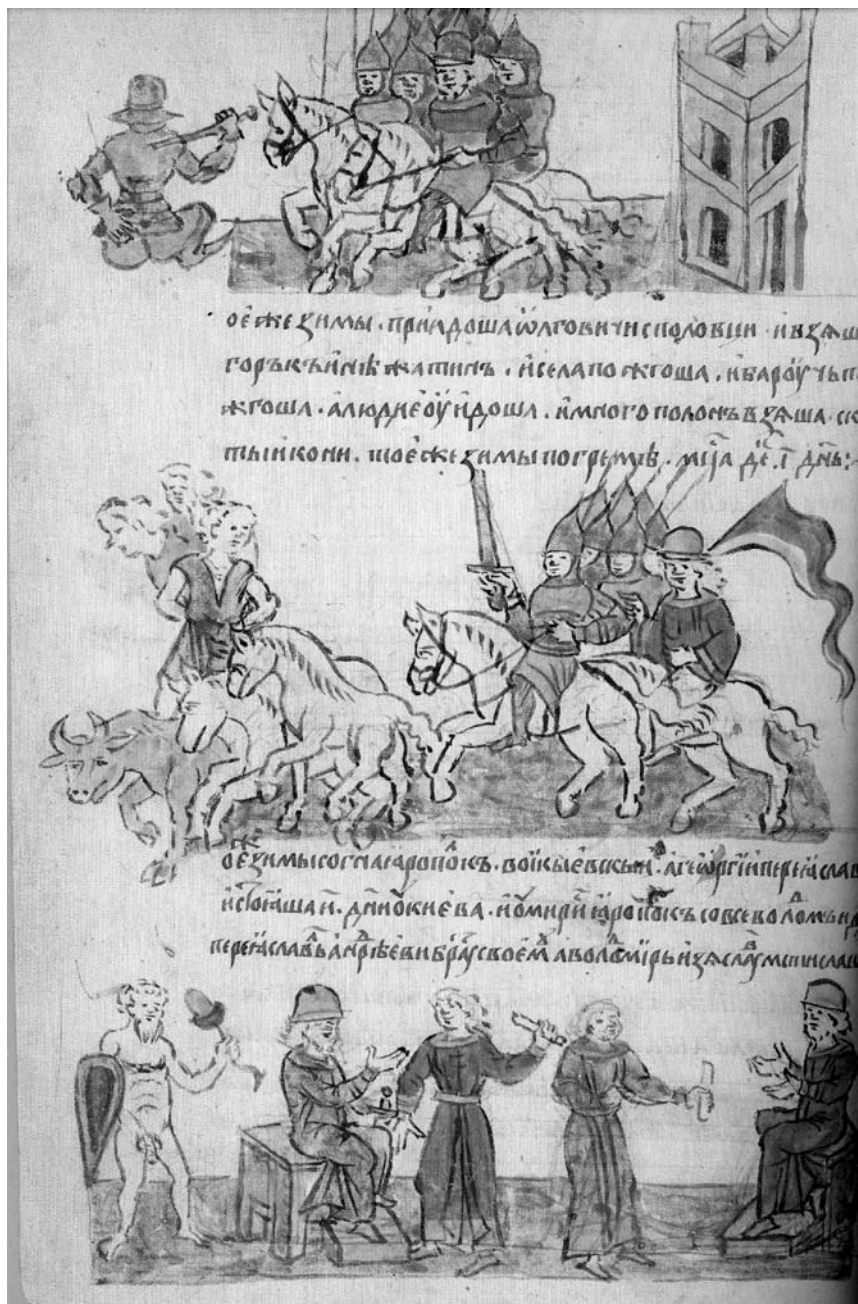 ое́же зимы · прїидоша ѡлговичи с половци · и взѧш
горъкъ и нѣжатинъ · и села пожгоша , и бароучь п
жгоша · а людие оу идоша , и много полонъ взѧша · ск
ты и кони . тоеже зимы погремѣ . мцⷭ҇а де҇. і҃ днь:
оеⷤ зимы согна ꙗрополкъ · вои кыевскыꙗ , а геѡргїи переꙗслав
и стоꙗша и҃ . дни ѹ киева . и ѹмири ꙗрополкъ со всеволодомъ
переꙗславль андрѣеви братоу своемоу а володимирь изѧславоу мстислав